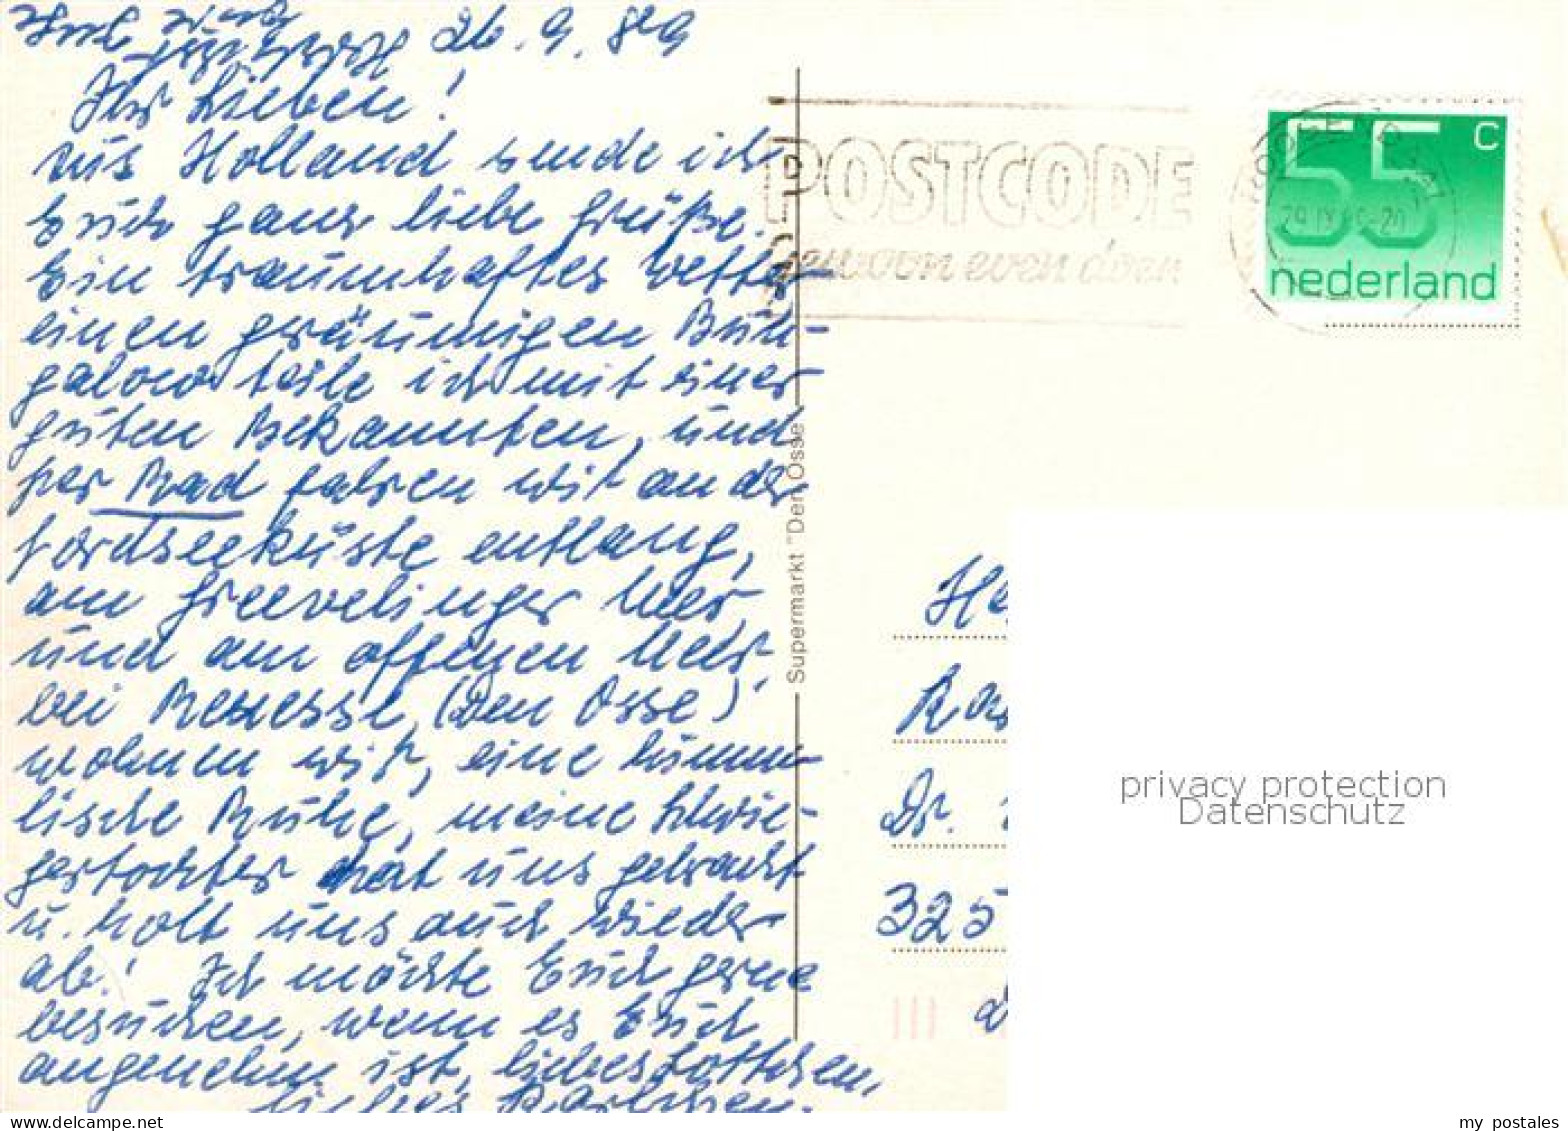 26. 9. 89
Ihr Lieben!
aus Holland sende ich
Euch ganz liebe Grüße.
Ein traumhaftes Wetter
einen geräumigen Bun-
galow teile ich mit einer
guten Bekannten, und
per Rad fahren wir an der
Nordseeküste entlang,
am Greevelinger Meer,
und am offenen Meer.
bei Renesse, (Den Osse)
wohnen wir, eine himm-
lische Ruhe, meine Schwie-
gertochter hat uns gebracht
u. holt uns auch wieder
ab! Ich möchte Euch gerne
besuchen, wenn es Euch
angenehm ist, liebes Lottchen,
liebes Karlchen.
Supermarkt "Den Osse"
POSTCODE
gewoon even doen
55 C
nederland
He
Dr.
325
privacy protection
Datenschutz
my postales
www.delcampe.net